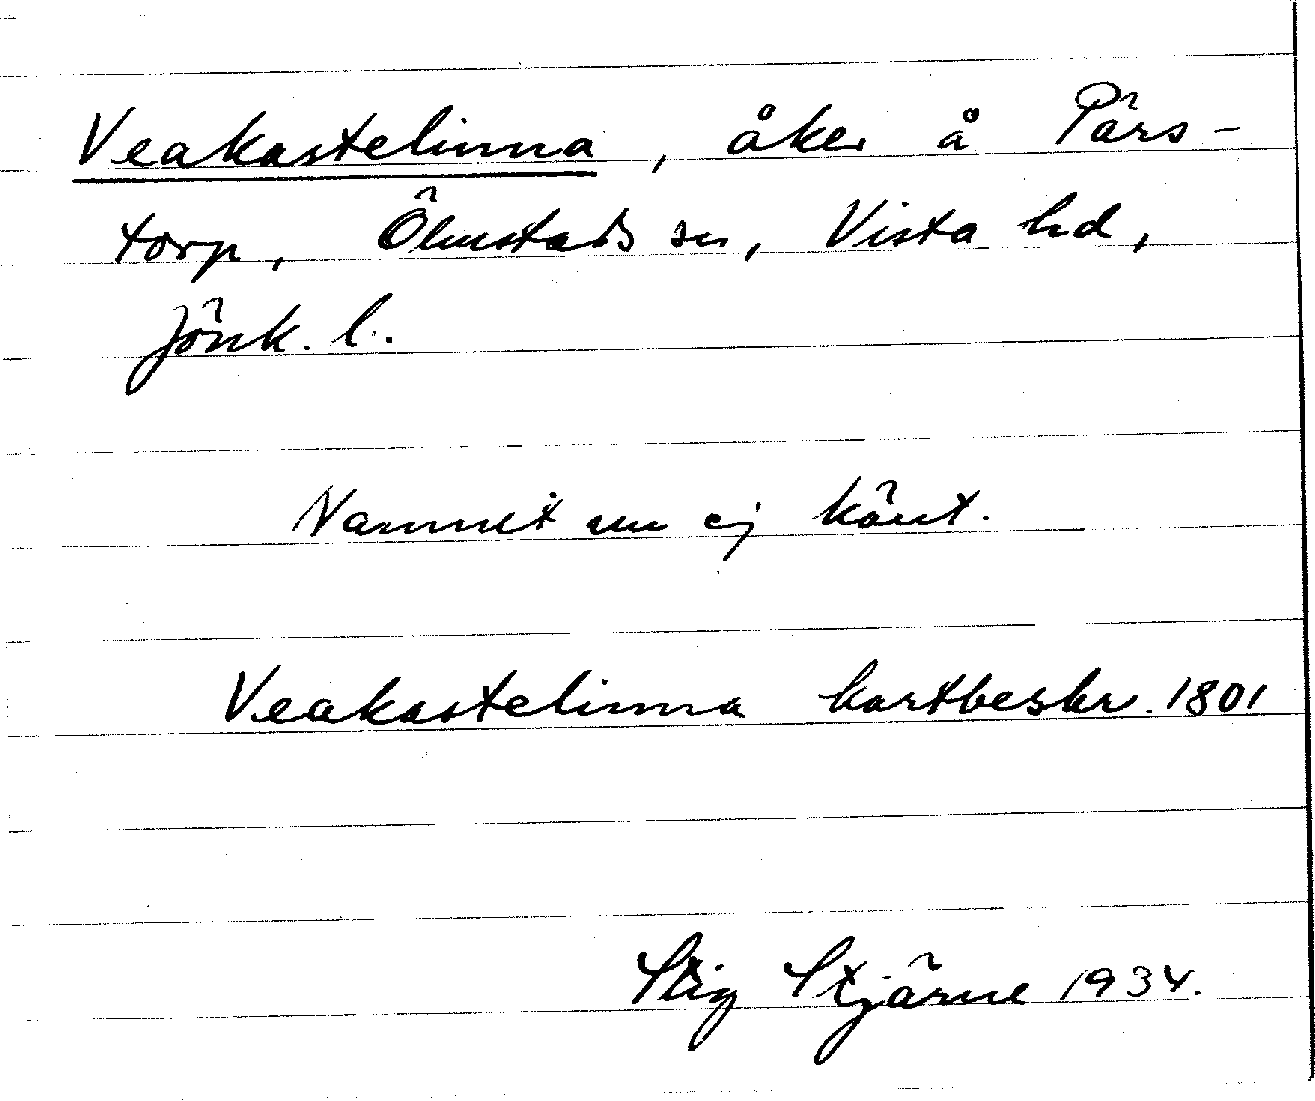 Veakastelinna, åker å Pärs-
torp, Ölmstads sn, Vista hd,
Jönk. l.
Namnet nu ej känt.
Veakastelinna kartbeskr. 1801
Stig Stjärne 1934.